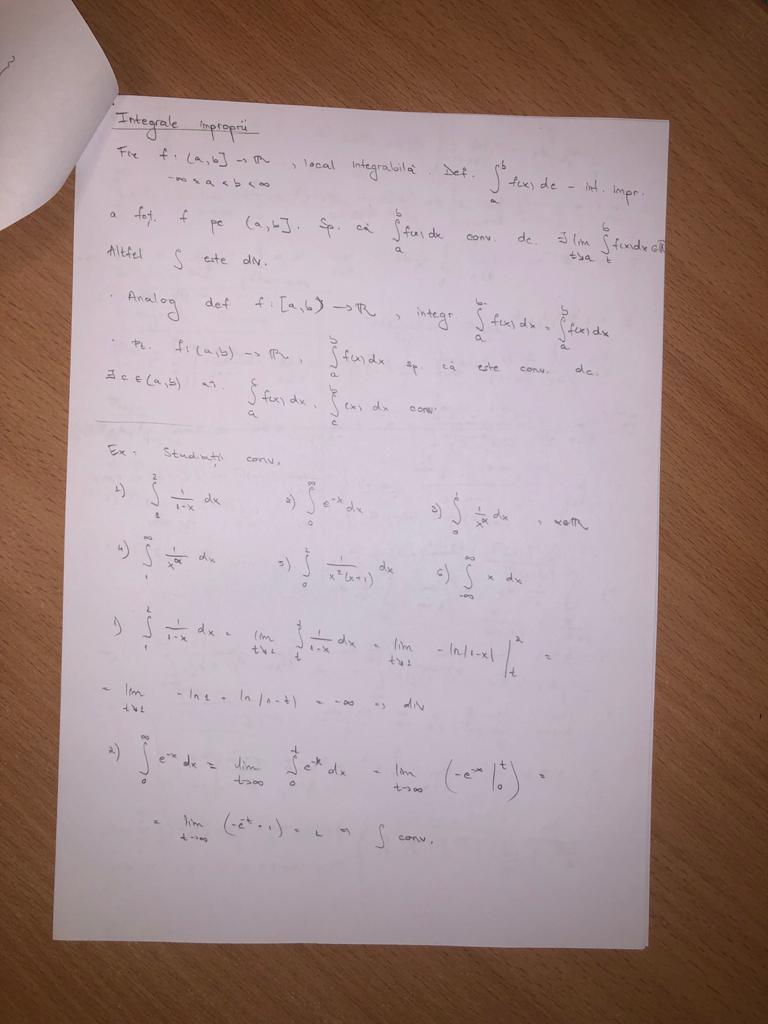 Integrale improprii
Fie f: (a,b] → ℝ, local integrabilă. Def. ∫_a^b f(x) dx - int. impr.
-∞ < a < b < ∞
a fcț. f pe (a,b]. Sp. că ∫_a^b f(x) dx conv. dc. ∃ lim_{t↘a} ∫_t^b f(x)dx ∈ ℝ
Altfel ∫ este div.
· Analog def f: [a,b) → ℝ, integr ∫_a^{b-} f(x) dx = ∫_a^b f(x) dx
· Pt. f: (a,b) → ℝ, ∫_a^b f(x) dx sp. că este conv. dc.
∃ c ∈ (a,b) aî. ∫_a^c f(x) dx, ∫_c^b (x) dx conv.
Ex: Studiați conv.
1) ∫_1^2 1/(1-x) dx 2) ∫_0^∞ e^{-x} dx 3) ∫_0^1 1/x^α dx, α∈ℝ
4) ∫_1^∞ 1/x^α dx 5) ∫_0^1 1/(x²(x+1)) dx 6) ∫_{-∞}^∞ x dx
1) ∫_1^2 1/(1-x) dx = lim_{t↘1} ∫_t^2 1/(1-x) dx = lim_{t↘1} -ln|1-x| |_t^2 =
= lim_{t↘1} -ln 1 + ln|1-t| = -∞ => div
2) ∫_0^∞ e^{-x} dx = lim_{t→∞} ∫_0^t e^{-x} dx = lim_{t→∞} (-e^{-x} |_0^t) =
= lim_{t→∞} (-e^{-t} + 1) = 1 => ∫ conv.